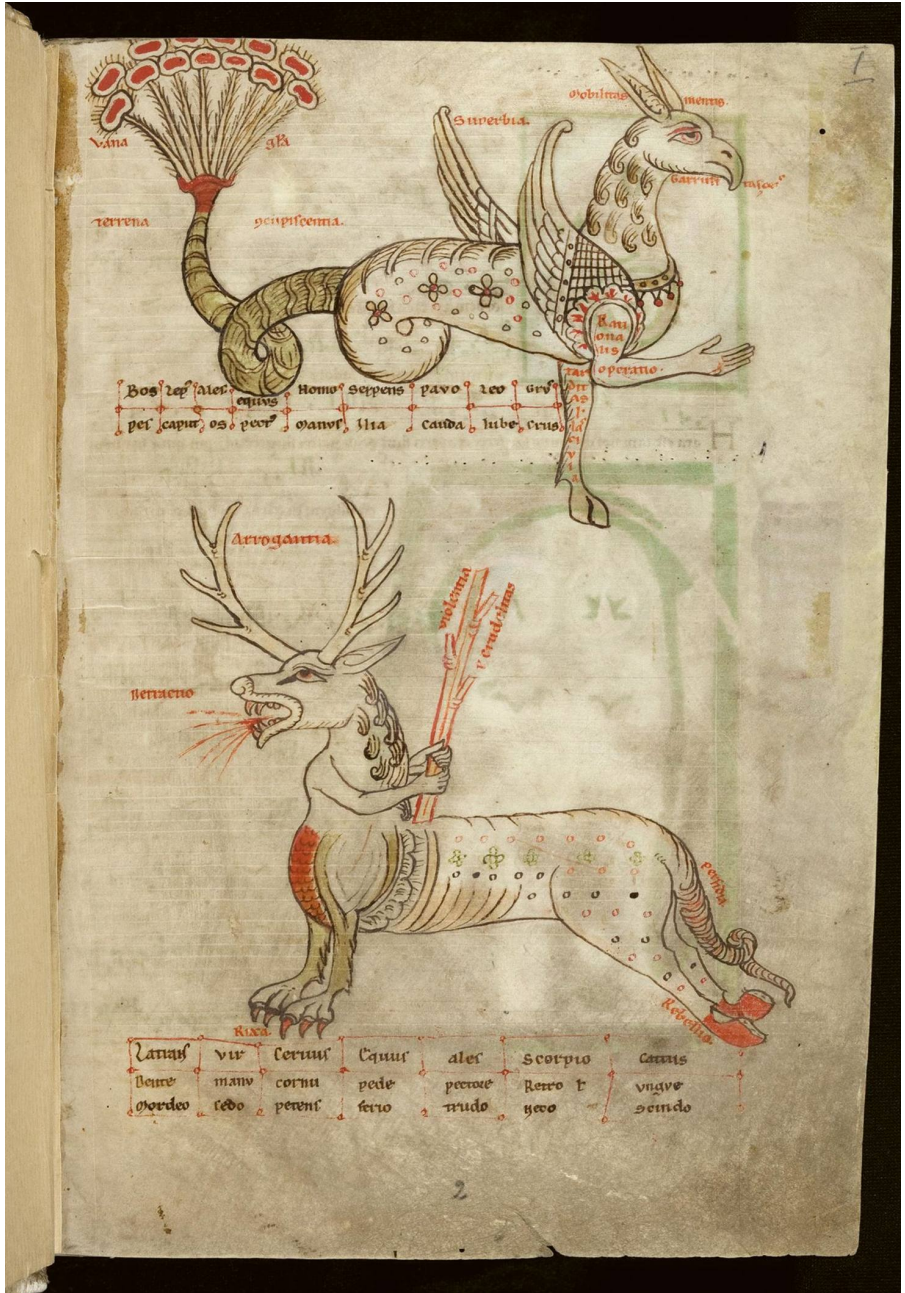 I
Mobilitas mentis.
Superbia.
Vana gl̃a
Garruli
terrena
Rati
ona
lis
operatio.
Bos Lep⁹ Ales equus Homo Serpens pavo Leo Gry⁹
pes caput os pect⁹ Manus Ilia cauda iube crus
Arrogantia.
violentia
crudelitas
Detractio
perfidia.
Rebellio.
Rixa.
Latrans vir Cervus Equus ales Scorpio cattus
Dente manu cornu pede pectore Retro ungue
Mordeo cedo petens ferio trudo neco scindo
2